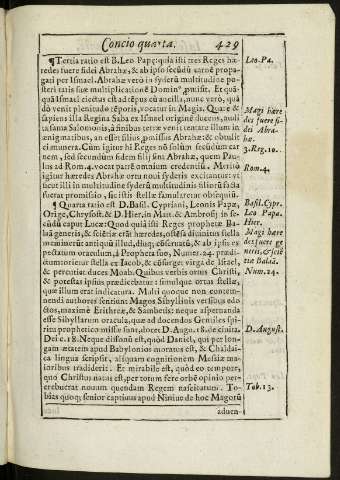 Concio quarta. 429
¶Tertia ratio est B. Leo Papę: quia isti tres Reges hæ-
redes fuere fidei Abrahæ, & ab ipso secūdū carnē propa-
gati per Ismael. Abrahæ verò in syderū multitudine po-
steri tatis suæ multiplicationē Domin9 pmisit. Et quā-
quā Ismael eiectus est ad tēpus cū ancilla, nunc verò, quā
dò venit plenitudo tēporis, vocatur in Magis. Quare &
sapiens illa Regina Saba ex Ismael origine ducens, audi
ta fama Salomonis, à finibus terræ venit tentare illum in
ænigmatibus, an esset filius pmissus Abrahæ; & obtulit
ei munera. Cùm igitur hi Reges nō solùm secundùm car
nem, sed secundùm fidem filij sint Abrahæ, quem Pau-
lus ad Rom. 4. vocat patrē omnium credentiū. Meritò
igitur hæredes Abrahæ ortu noui syderis excitantur: vt
sicut illi in multitudine syderū multitudinis filiorū facta
fuerat promissio, sic istis stellæ famularetur obsequiū.
¶Quarta ratio est D. Basil. Cypriani, Leonis Papæ,
Orige, Chrysost. & D. Hier. in Matt. & Ambrosij in se-
cūdū caput Lucæ: Quod quia isti Reges prophetæ Ba-
laā generis, & sciētiæ erāt hæredes, ostēsa diuinitus stella
meminerūt antiqui illud, diuq; cōseruatū, & ab ipsis ex
pectatum oraculum, à Propheta suo, Numer. 24. prædi-
ctum: orietur stella ex Iacob, & cōsurget virga de Israel,
& percutiet duces Moab. Quibus verbis ortus Christi,
& potestas ipsius prædicebatur: simulque ortus stellæ,
quæ illum erat indicatura. Multi quoque non contem-
nendi authores sentiunt Magos Sibyllinis versibus edo
ctos, maximè Erithreæ, & Sambetis: neque aspernanda
esse Sibyllarum oracula, quæ ad docendos Gentiles spi-
ritu prophetico missæ sunt, docet D. Augo. 18. de ciuita.
Dei c. 18. Neque dissonū est, quòd Daniel, qui per lon-
gam ætatem apud Babylonios moratus est, & Chaldai-
ca lingua scripsit, aliquam cognitionem Messiæ ma-
ioribus tradiderit. Et mirabile est, quòd eo tempore,
quo Christus natus est, per totum fere orbē opinio per-
crebuerat nouum quendam Regem nasciturum. To-
bias quoq; senior captiuus apud Niniue de hoc Magorū
aduen-
Leo. Pa.
Magi hære
des fuere fi-
dei Abra-
hæ.
3. Reg. 10.
Rom. 4.
Basil. Cypr.
Leo Papa.
Hier.
Magi hære
des fuere ge
neris, & sciē
tiæ Balaā.
Num. 24.
D. August.
Tob. 13.